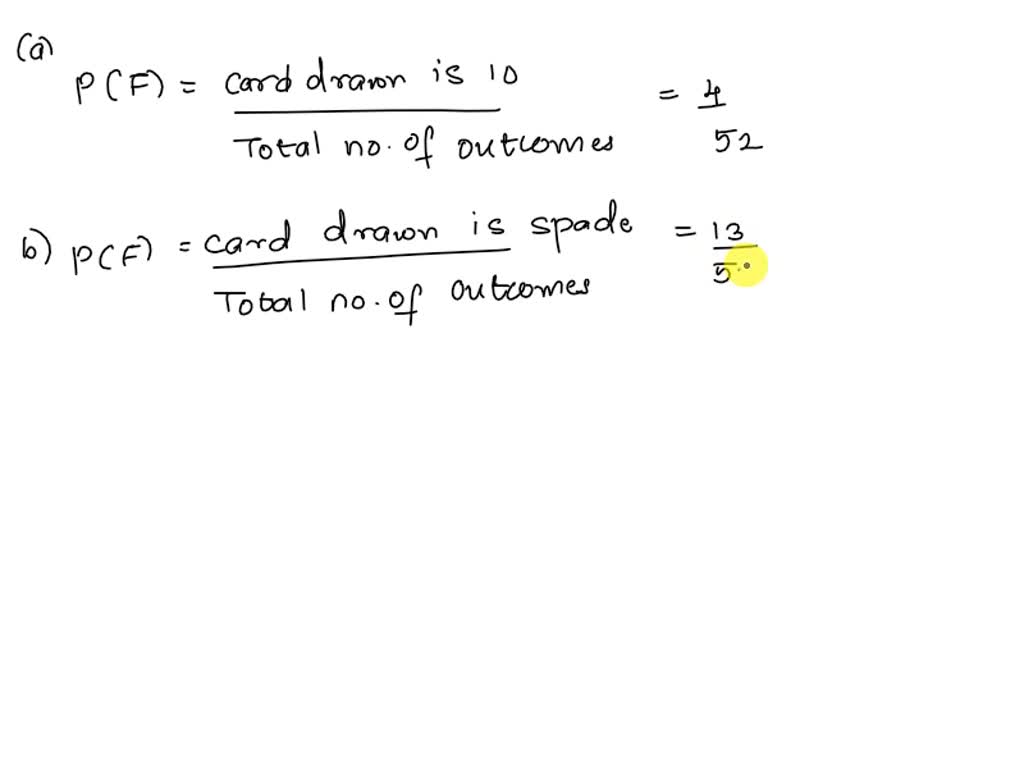 (a)
P(F) = card drawn is 10 = 4
Total no. of outcomes 52
b) P(F) = card drawn is spade = 13
Total no. of outcomes 5